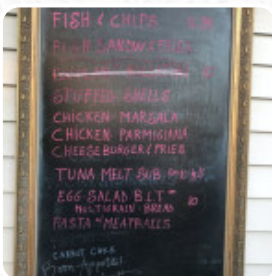 FISH & CHIPS
FISH SANDW
STUFFED SHELLS
CHICKEN MARSALA
CHICKEN PARMIGIANA
CHEESEBURGER & FRIES
TUNA MELT SUB
EGG SALAD B.L.T
MULTIGRAIN BREAD 10
PASTA MEATBALLS
CARROT CAKE